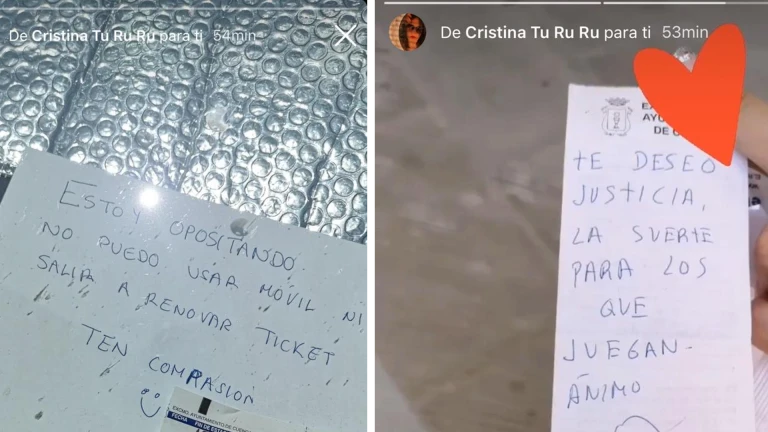 De Cristina Tu Ru Ru para ti 54min
ESTOY OPOSITANDO
NO PUEDO USAR MÓVIL NI
SALIR A RENOVAR TICKET
TEN COMPRASIÓN
EXCMO. AYUNTAMIENTO DE CUENCA
FECHA FIN DE
De Cristina Tu Ru Ru para ti 53min
AYU
DE
TE DESEO
JUSTICIA,
LA SUERTE
PARA LOS
QUE
JUEGAN-
ÁNIMO